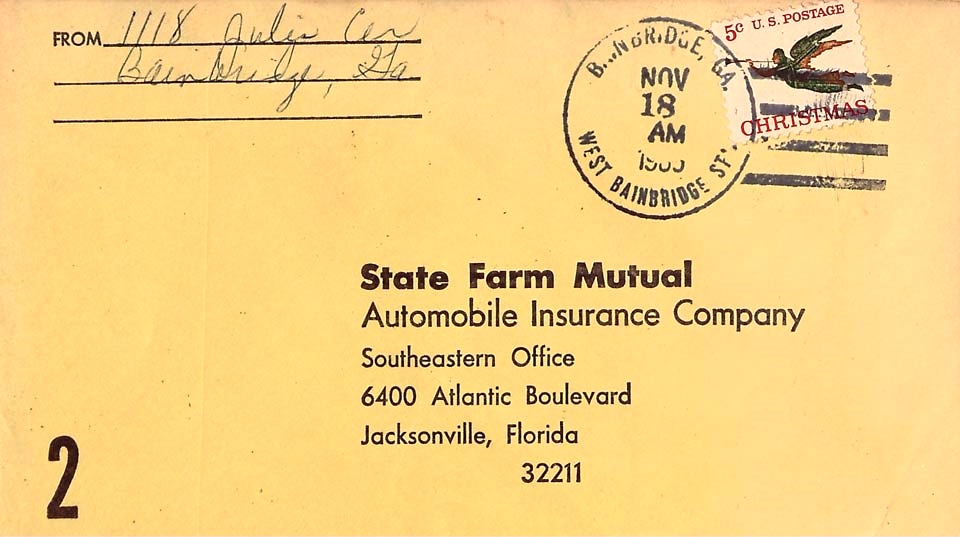 FROM 1118 Julia Ave
Bainbridge, Ga
BAINBRIDGE, GA.
NOV
18
AM
WEST BAINBRIDGE STA.
5c U.S. POSTAGE
CHRISTMAS
State Farm Mutual
Automobile Insurance Company
Southeastern Office
6400 Atlantic Boulevard
Jacksonville, Florida
32211
2